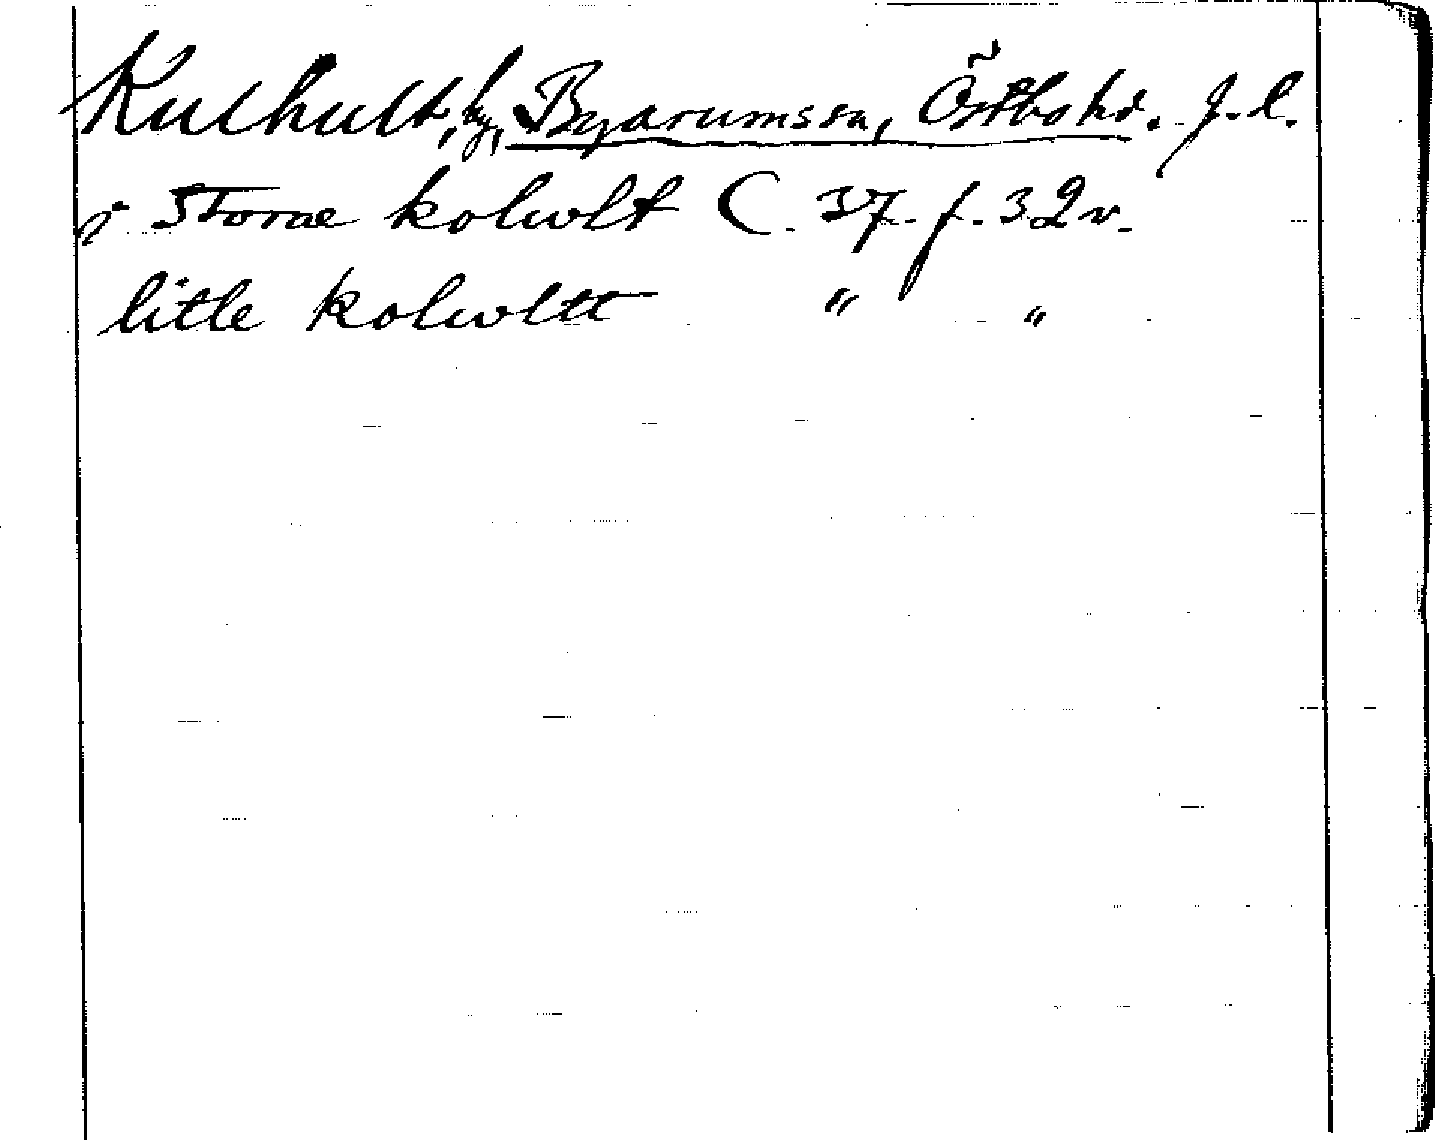 Kulhult, by, Byarumssn, Östbohd. J.l.
j Storae kolwlt C. 37. f. 32v.
litle kolwltt " "